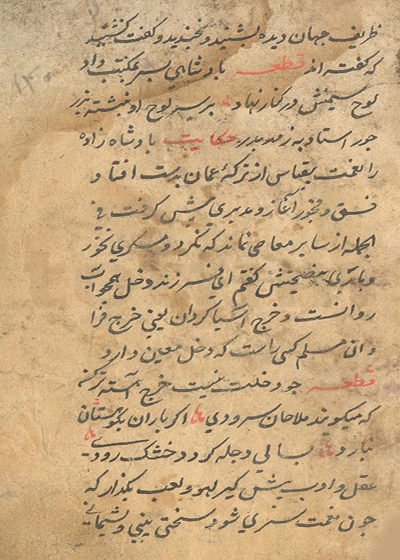 ظریف جهان دیده بشنید و بخندید و گفت نشنیدید
که گفته اند قطعه پادشاهی پسر بمکتب داد
لوح سیمینش در کنار نهاد بر سر لوح او نبشته بزر
جور استاد به ز مهر پدر حکایت پادشاه زاده
را نعمت بقیاس از ترکه عمان بدست افتاد
فسق و فجور آغاز و مبذری پیش گرفت فی
الجمله از سایر معاصی نماند که نکرد و مسکری نخورد
و باری بنصیحتش گفتم ای فرزند دخل همچو آب
روانست و خرج آسیا گردان یعنی خرج فرا
وان مسلم کسی راست که دخل معین دارد
قطعه چو دخلت نیست خرج آهسته تر کن
که میگویند ملاحان سرودی اگر باران بکوهستان
نبارد بسالی دجله گردد خشک رودی
عقل و ادب پیش گیر لهو و لعب بگذار که
چون نعمت سپری شود سختی بینی و پشیمانی